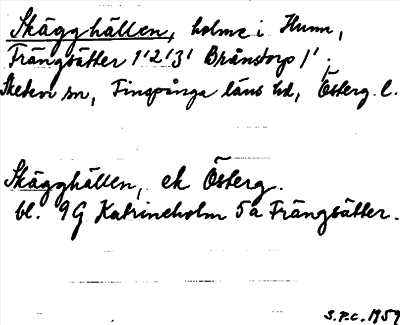 Skägghällen, holme i Hunn,
Frängsätter 1¹2¹3¹ Brånstorp 1¹.
Skedevi sn, Finspånga läns hd, Österg. l.
Skägghällen, ek Österg.
bl. 9G Katrineholm 5a Frängsätter.
S.P.C. 1959